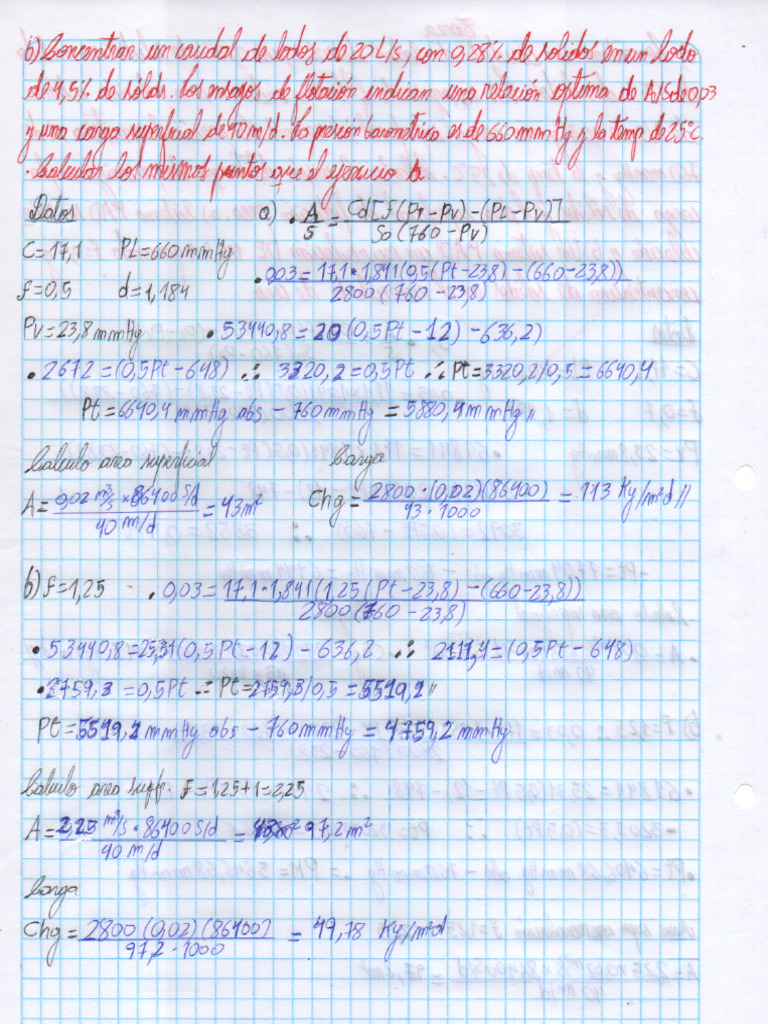 b) Concentrar un caudal de lodos de 20 L/s, con 0,28% de solidos en un lodo
de 4,5% de sólds. los ensagos de flotación indican una relación optima de A/S de 0,03
y una carga superficial de 40 m/d. la presion barometrica es de 660 mm Hg y la temp de 25°C.
. Calcular los mismos puntos que el ejercicio
Datos
a) • A/S = Cd[f(Pt-Pv)-(PL-Pv)] / So(760-Pv)
C=17,1 PL=660mmHg
• 0,03=17,1•1,841(0,5(Pt-23,8)-(660-23,8)) / 2800(760-23,8)
f=0,5 d=1,184
Pv=23,8 mmHg • 53440,8=20(0,5Pt-12)-636,2)
• 2672=(0,5Pt-648) ∴ 3320,2=0,5Pt ∴ Pt=3320,2/0,5=6640,4
Pt=6640,4 mmHg abs - 760mmHg = 5880,4mmHg //
Calculo area superficial Carga
A= 0,02 m³/s × 86400 s/d / 40 m/d = 43m² Chg= 2800•(0,02)(86400) / 43•1000 = 113 Kg/m²d //
b) f=1,25 • 0,03=17,1•1,841(1,25(Pt-23,8)-(660-23,8)) / 2800(760-23,8)
• 53440,8=25,31(0,5Pt-12)-636,2 ∴ 2111,4=(0,5Pt-648)
• 2759,3=0,5Pt ∴ Pt=2759,3/0,5=5519,2 //
Pt=5519,2 mmHg abs - 760mmHg = 4759,2mmHg
Calculo area supfr. F=1,25+1=2,25
A= 2,25 m³/s • 86400 s/d / 40 m/d = 97,2 m²
Carga
Chg= 2800(0,02)(86400) / 97,2•1000 = 49,78 Kg/m²d